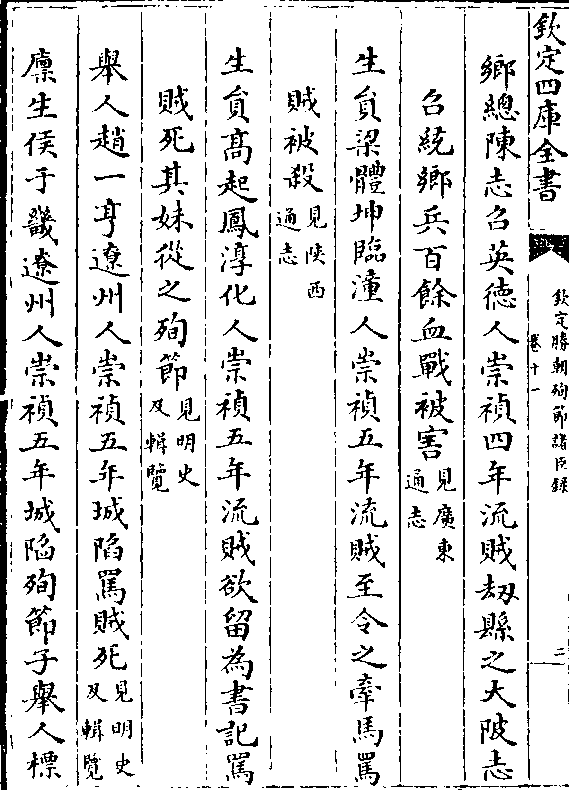 欽定四庫全書
欽定勝朝殉節諸臣錄
卷十一
二
鄉總陳志召英德人崇禎四年流賊刼縣之大陂志
召統鄉兵百餘血戰被害見廣東
通志
生員梁體坤臨潼人崇禎五年流賊至令之牽馬罵
賊被殺見陜西
通志
生員高起鳳淳化人崇禎五年流賊欲留為書記罵
賊死其妹從之殉節見明史
及輯覽
舉人趙一亨遼州人崇禎五年城陷罵賊死見明史
及輯覽
廪生侯于畿遼州人崇禎五年城陷殉節子舉人標